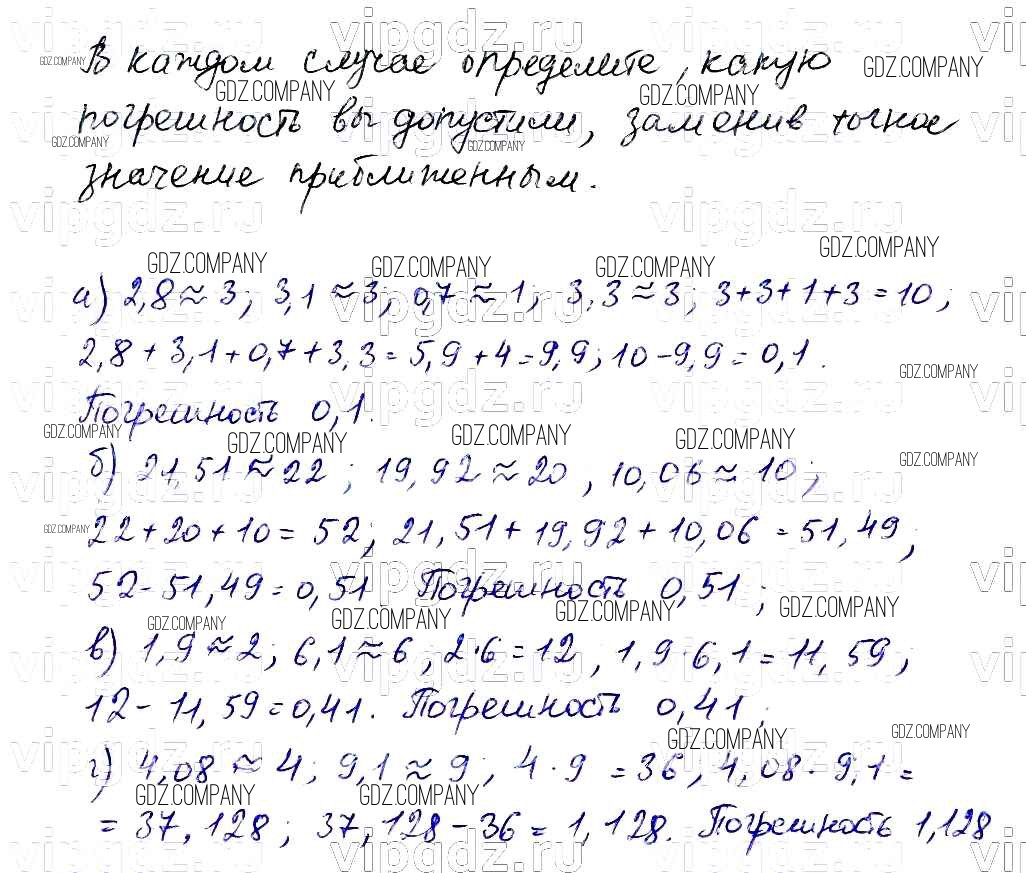 В каждом случае определите, какую
погрешность вы допустили, заменив точное
значение приближенным.
а) 2,8 ≈ 3; 3,1 ≈ 3; 0,7 ≈ 1; 3,3 ≈ 3; 3+3+1+3 = 10;
2,8 + 3,1 + 0,7 + 3,3 = 5,9 + 4 = 9,9; 10 - 9,9 = 0,1.
Погрешность 0,1.
б) 21,51 ≈ 22; 19,92 ≈ 20, 10,06 ≈ 10;
22 + 20 + 10 = 52; 21,51 + 19,92 + 10,06 = 51,49;
52 - 51,49 = 0,51 Погрешность 0,51;
в) 1,9 ≈ 2; 6,1 ≈ 6, 2·6 = 12, 1,9·6,1 = 11,59;
12 - 11,59 = 0,41. Погрешность 0,41.
г) 4,08 ≈ 4; 9,1 ≈ 9, 4·9 = 36, 4,08·9,1 =
= 37,128; 37,128 - 36 = 1,128. Погрешность 1,128
vipgdz.ru
GDZ.COMPANY